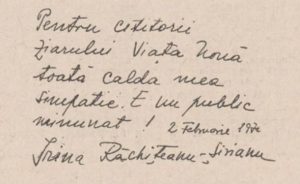 Pentru cititorii
ziarului Viața Nouă
toată calda mea
simpatie. E un public
minunat!
2 Februarie 197
Irina Răchițeanu-Șirianu